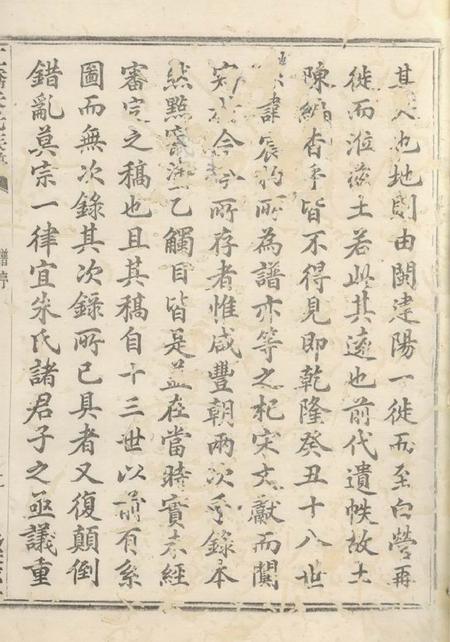 其人也地則由閩建陽一徙而至白營再
徙而涖茲土若此其遠也前代遺帙故土
陳編杳乎皆不得見即乾隆癸丑十八世
諱宸所為譜亦等之杞宋文獻而闕
如今所存者惟咸豐朝兩次手錄本
然點竄塗乙觸目皆是並在當時實未經
審定之稿也且其稿自十三世以前有系
圖而無次錄其次錄所已具者又復顛倒
錯亂莫宗一律宜朱氏諸君子之亟議重
譜序